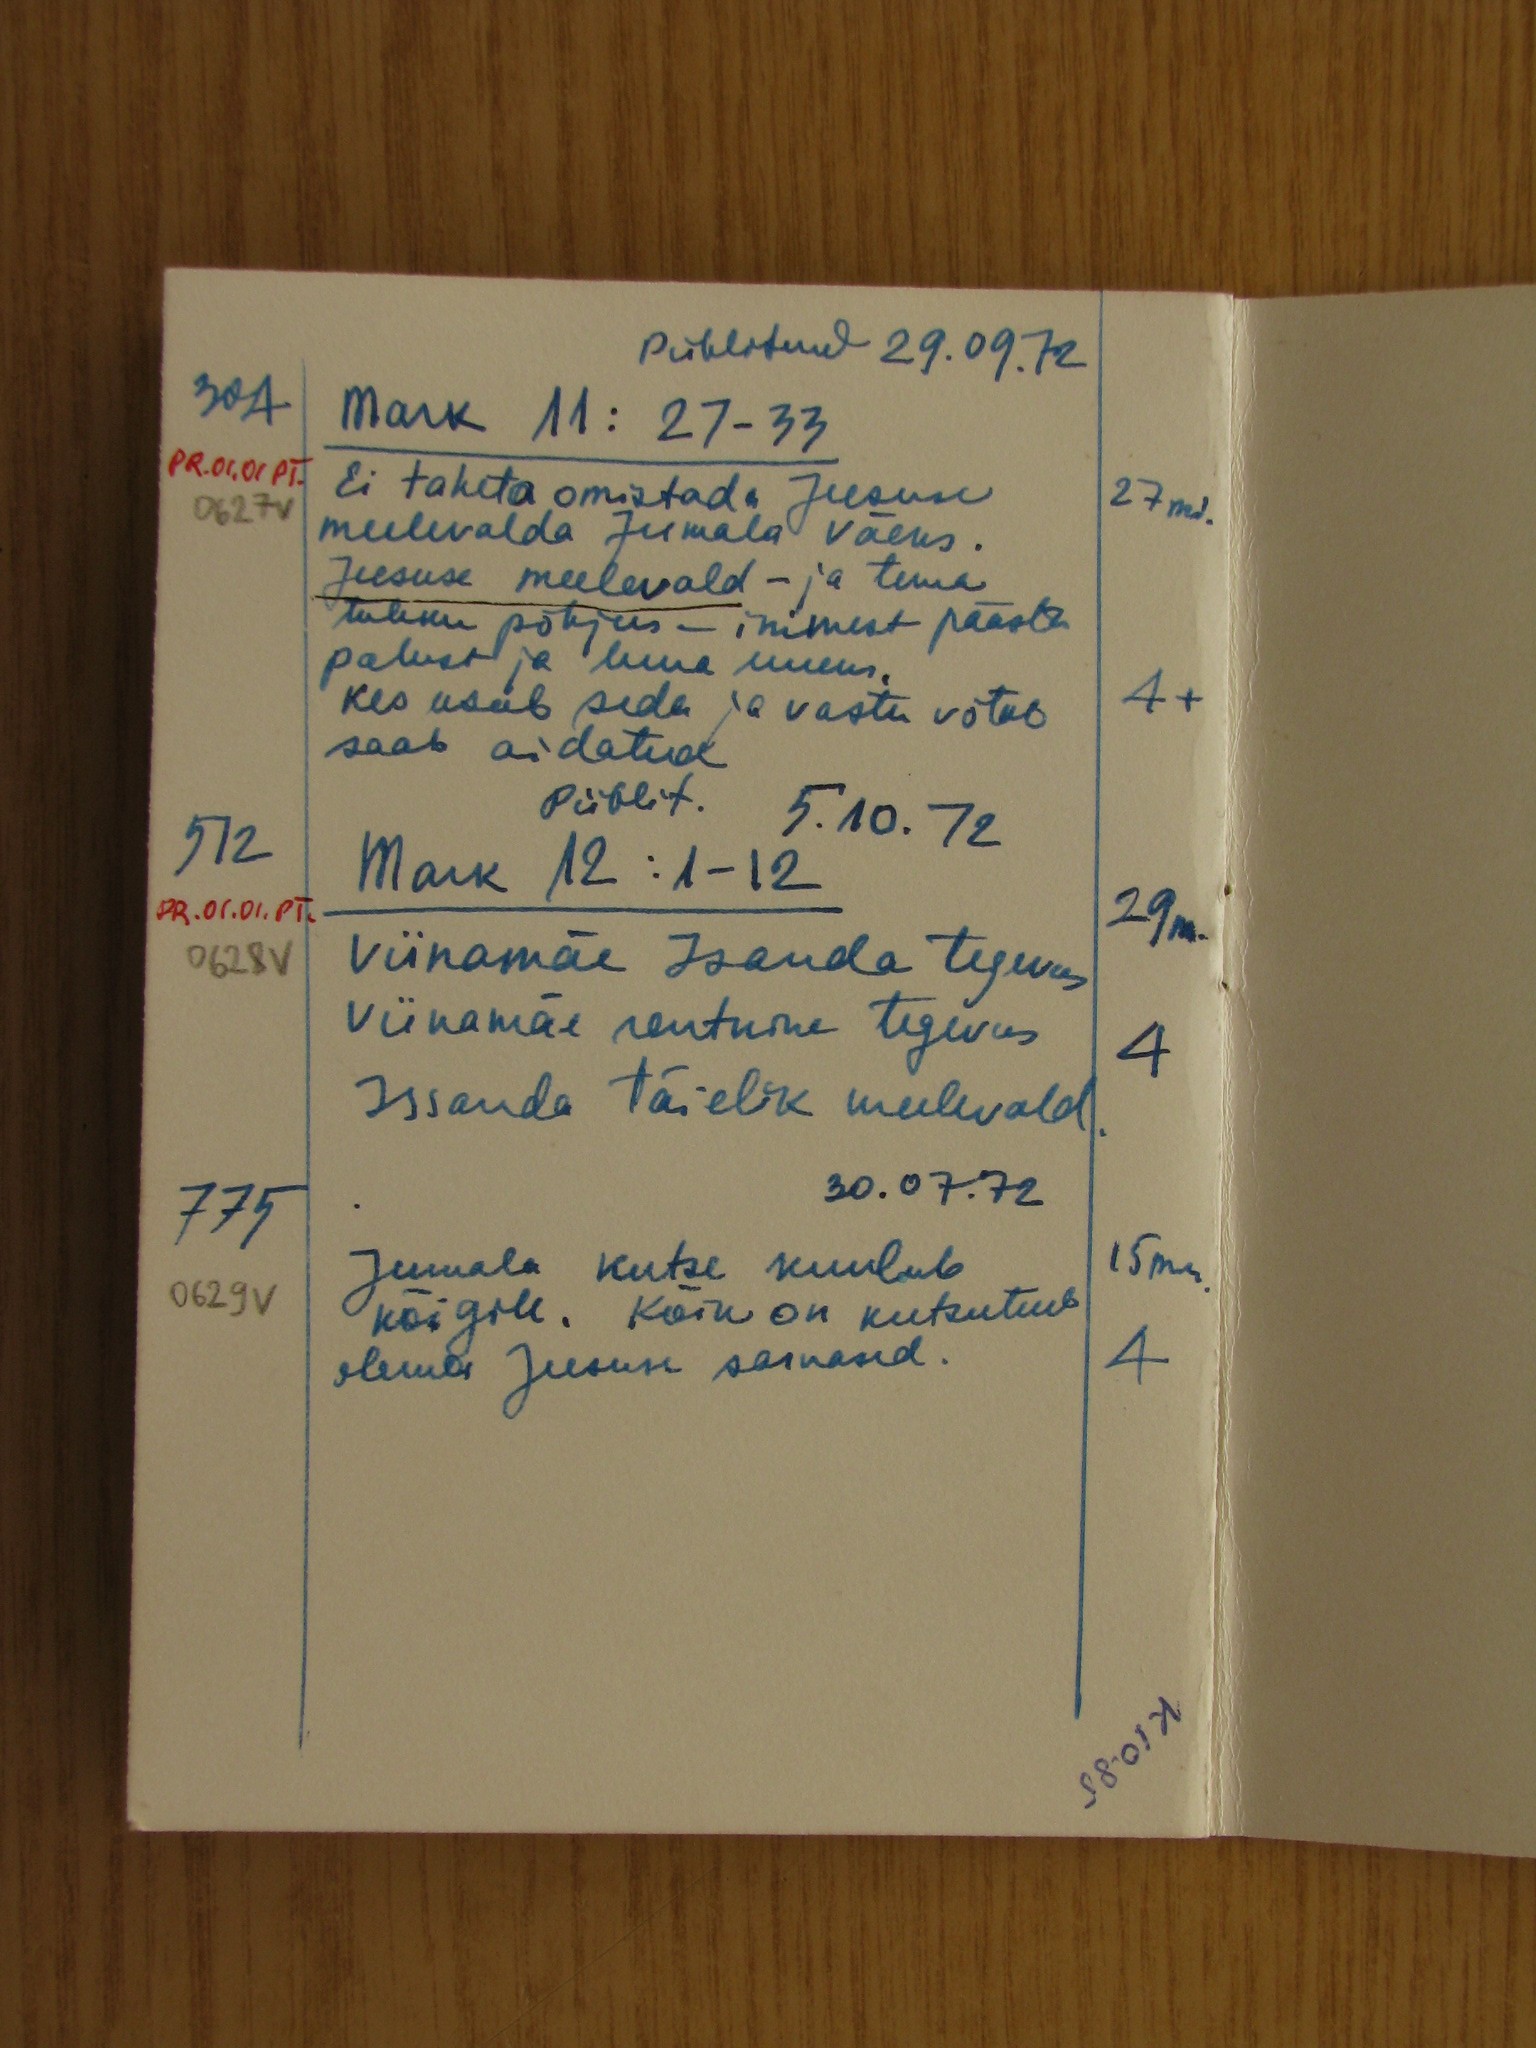 Piiblitund 29.09.72
304 Mark 11: 27-33
PR.01.01 PT.
0627V
Ei taheta omistada Jeesuse 27 min.
meelevalda Jumala väeks.
Jeesuse meelevald - ja tema
tuleku põhjus - inimest päästa
patust ja luua uueks.
Kes usub seda ja vastu võtab 4+
saab aidatud
Piiblit. 5.10.72
512 Mark 12:1-12
PR.01.01. PT. 29 m.
0628V Viinamäe Isanda tegevus
Viinamäe rentnike tegevus 4
Issanda täielik meelevald.
775 30.07.72
Jumala kutse kuulub 15 min.
0629V kõigile. Kõik on kutsutud
olema Jeesuse sarnased. 4
K10.85